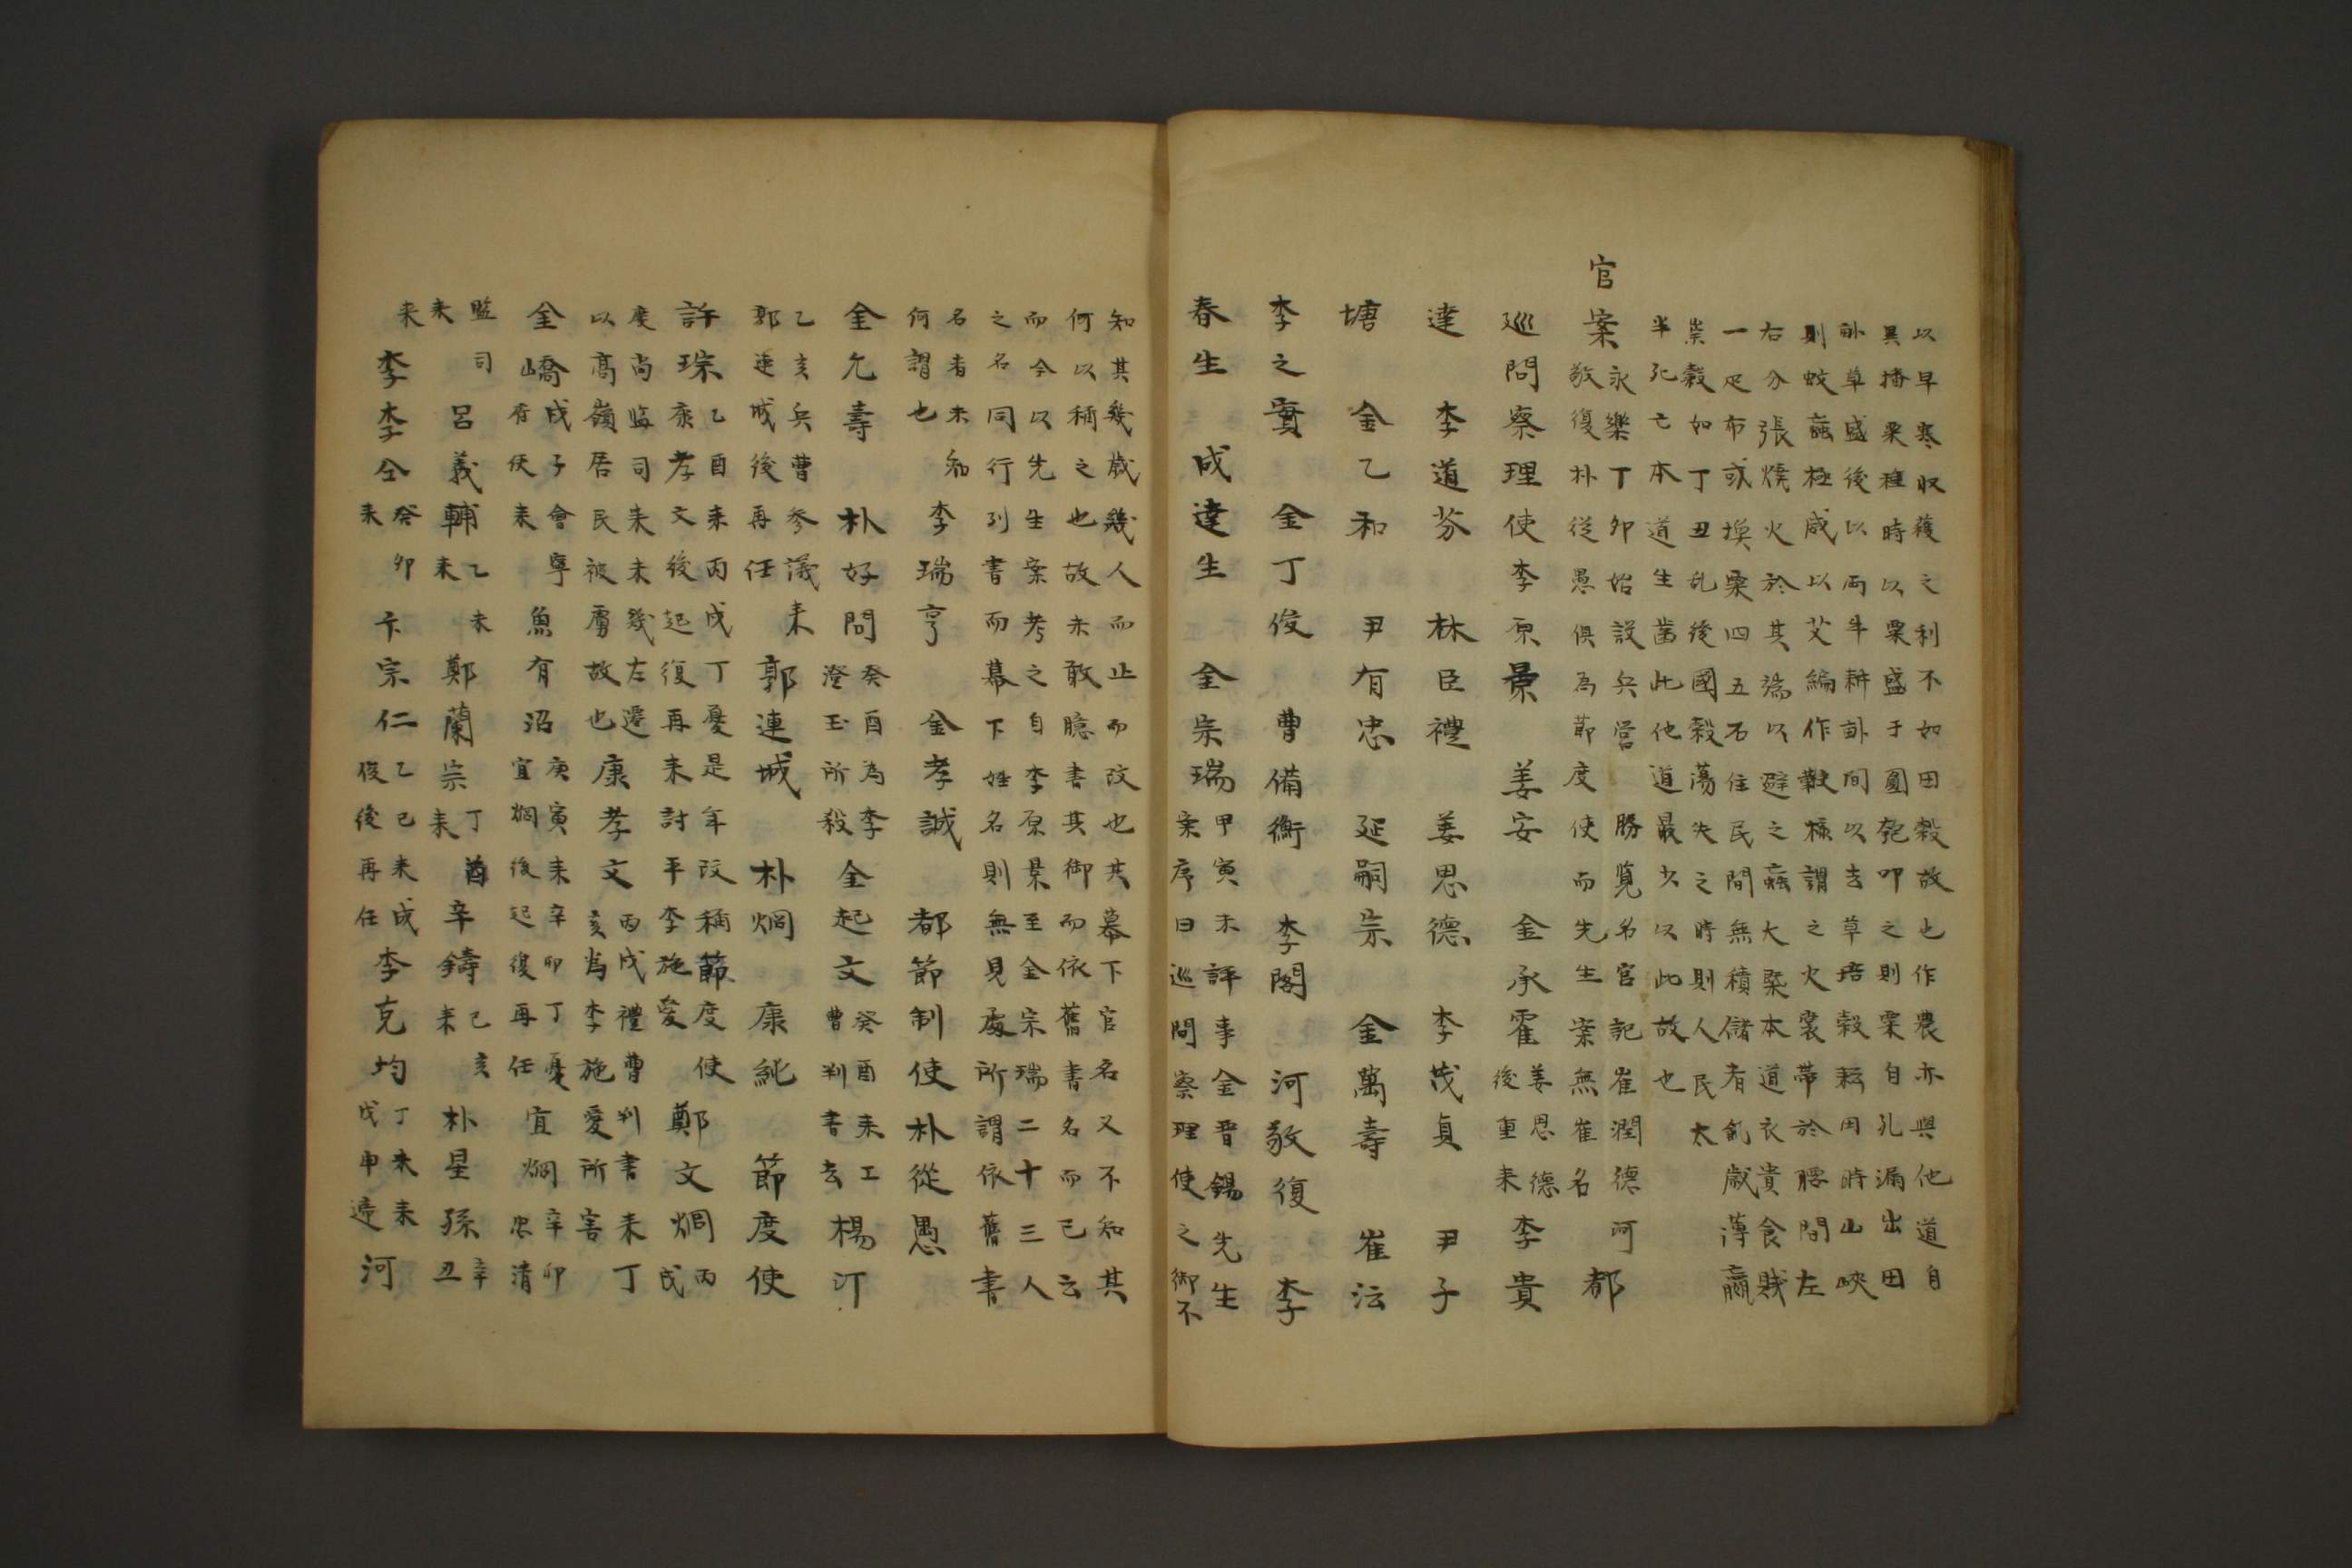 以早寒収穫之利不如田穀故也作農亦與他道自
異播粟種時以粟盛于圓匏叩之則粟自孔漏出田
畝草盛後以兩牛耕畝間以去草培穀耘田時山峽
則蚊蝱極咸以艾編作鞭樣謂之火裳帶於腰間左
右分張燒火於其端以避之蝱大槩本道衣貴食賤
一疋布或換粟四五石住民間無積儲者亂歲薄羸
崇穀如丁丑乱後國穀蕩失之時則人民太
半死亡本道生齒此他道最少以此故也
官案
永樂丁卯始設兵營 勝覽名官記崔潤德河
敬復朴從愚俱為節度使而先生案無崔名
都
巡問察理使李原景 姜安 金承霍
姜思德
後重来
李貴
達 李道芬 林臣禮 姜思德 李茂貞 尹子
塘 金乙和 尹有忠 延嗣宗 金萬壽 崔沄
李之實 金丁俊 曹備衡 李閣 河敬復 李
春生 成達生 全宗瑞
甲寅未評事金晋錫先生
案序曰巡問察理使之御不
知其幾歲幾人而止而改也其幕下官名又不知其
何以稱之也故未敢臆書其御而依舊書名而已云
而今以先生案考之自李原景至金宗瑞二十三人
之名同行列書而幕下姓名則無見處所謂依舊書
名者未知
何謂也
李瑞亨 金孝誠 都節制使朴從愚
金允壽 朴好問
癸酉為李
澄玉所殺
金起文
癸酉来工
曹判書去
楊汀
乙亥兵曹参議来
郭連城後再任
郭連城 朴烱 康純 節度使
許琮
乙酉来丙戌丁憂是年改稱節度使
康孝文後起復再来討平李施愛
鄭文烱
丙戌
度尚監司来未幾左遷
以高嶺居民被虜故也
康孝文
丙戌禮曹判書来丁
亥為李施愛所害
金嶠
戌子會寧
府使来
魚有沼
庚寅来辛卯丁憂
宜烱後起復再任
宜烱
辛卯
忠清
監司
来
呂義輔
乙未
来
鄭蘭宗
丁酉
来
辛鑄
己亥
来
朴星孫
辛丑
来
李李仝
癸卯
来
卞宗仁
乙巳来成
俊後再任
李克均
丁未来
戊申遆
河